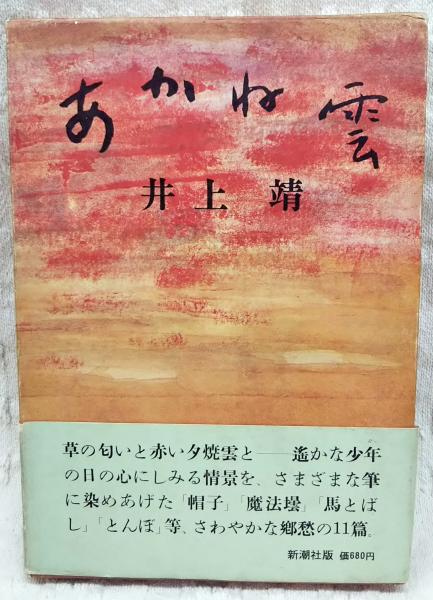 あかね雲
井上 靖
草の匂いと赤い夕焼雲と――遙かな少年
の日の心にしみる情景を、さまざまな筆
に染めあげた「帽子」「魔法壜」「馬とば
し」「とんぼ」等、さわやかな郷愁の11篇。
新潮社版 価680円